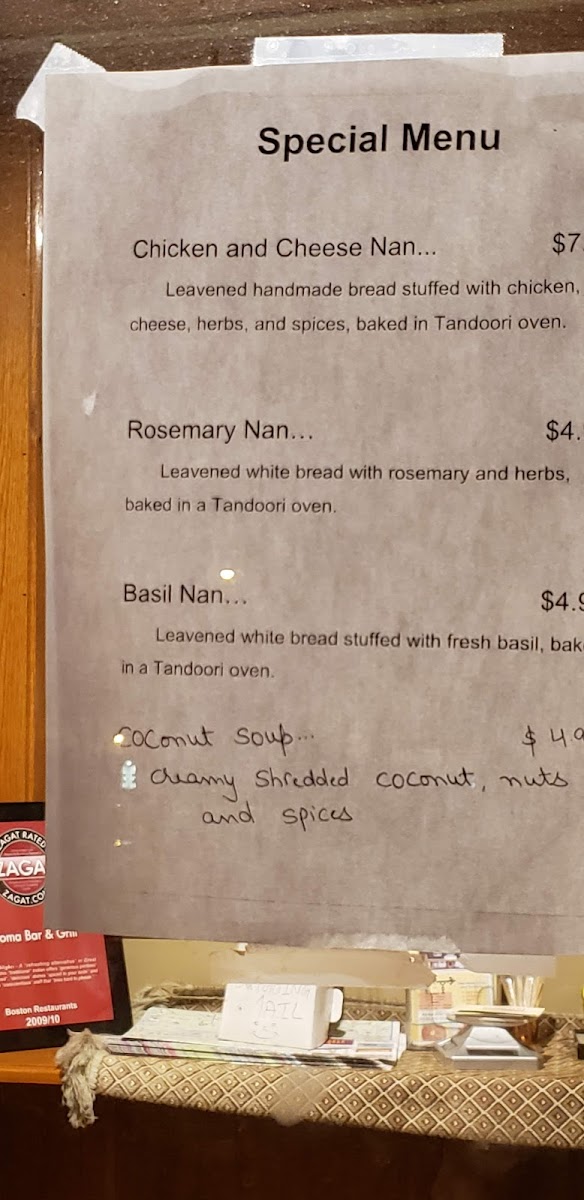 Special Menu
Chicken and Cheese Nan... $7
Leavened handmade bread stuffed with chicken,
cheese, herbs, and spices, baked in Tandoori oven.
Rosemary Nan... $4.
Leavened white bread with rosemary and herbs,
baked in a Tandoori oven.
Basil Nan... $4.9
Leavened white bread stuffed with fresh basil, bak
in a Tandoori oven.
Coconut Soup... $ 4.9
Creamy Shredded coconut, nuts
and spices
AGAT RATED
ZAGA
ZAGAT.CO
oma Bar & Grill
Boston Restaurants
2009/10